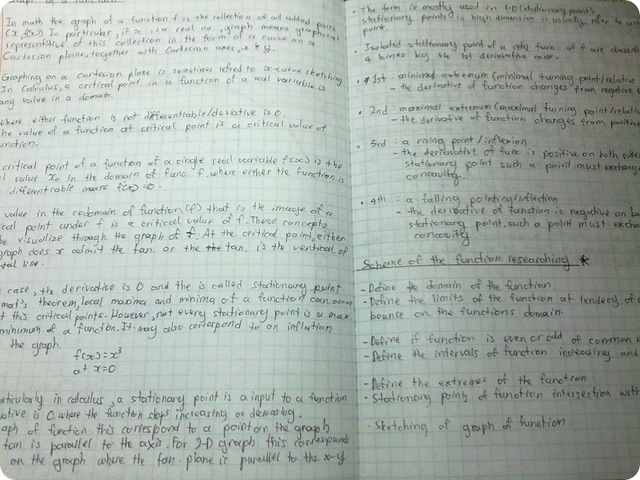 Graph of a function.
In math the graph of a function f is the collection of all ordered pairs
(x, f(x)). In particular, if x is a real no., graph means graphical
representitive of this collection in the form of a curve on a
Cartesian plane, together with Cartesian axes, x & y.
Graphing on a cartesian plane is sometimes refred to x-curve sketching
In calculus, a critical point in a function of a real variable is
any value in a domain.
where either function is not differentiable/deviative is 0.
The value of a function at critical point is a critical value of
function.
critical point of a function of a single real variable f(x) is the
al value x₀ in the domain of func. f. where either the function is
differentiable means f(x₀)=0.
value in the codomain of function(f) that is the image of a
ical point under f is a critical value of f. These concepts
be visualize through the graph of f. At the critical point, either
graph does x admit the tan. or the tan. is the vertical or
tal line.
case, the derivative is 0 and the is called stationary point.
mat's theorem, local maxima and minima of a function can occur
at this critical points. However, not every stationary point is a max
minimum of a function. It may also correspond to an inflation
the graph.
f(x)=x³
at x=0
articularly in calculus, a stationary point is a input to a function
ative is 0, where the function stops increasing or decreasing.
aph of function. this correspond to a point on the graph
tan is parallel to the axis. For 2-D graph this corresponds
on the graph where the tan. plane is parallel to the x-y
The term is mostly used in 1-D (stationary point),
stationary points is high dimension is usually refer to
point.
• Isolated stationary point of a real func. of f are classified
4 kinds by the 1st derivative
• 1st - minimal extremum (minimal turning point/relative
- the derivative of function changes from negative
• 2nd - maximal extremum (maximal turning point/relative
- the derivative of function changes from positive
• 3rd - a rising point/inflexion
- the derivative of func is positive on both side
stationary point such a point must exchange
concavity.
• 4th - a falling point/inflection
- the derivative of function is negative on b
stationary point, such a point must excha
concavity
Scheme of the function researching *
- Define the domain of the function.
- Define the limits of the function at tendecy of
bounce on the functions domain.
- Define if function is even or odd of common
- Define the intervals of function increasing and
- Define the extremes of the function
- Stationary points of function intersection with
- Sketching of graph of function.